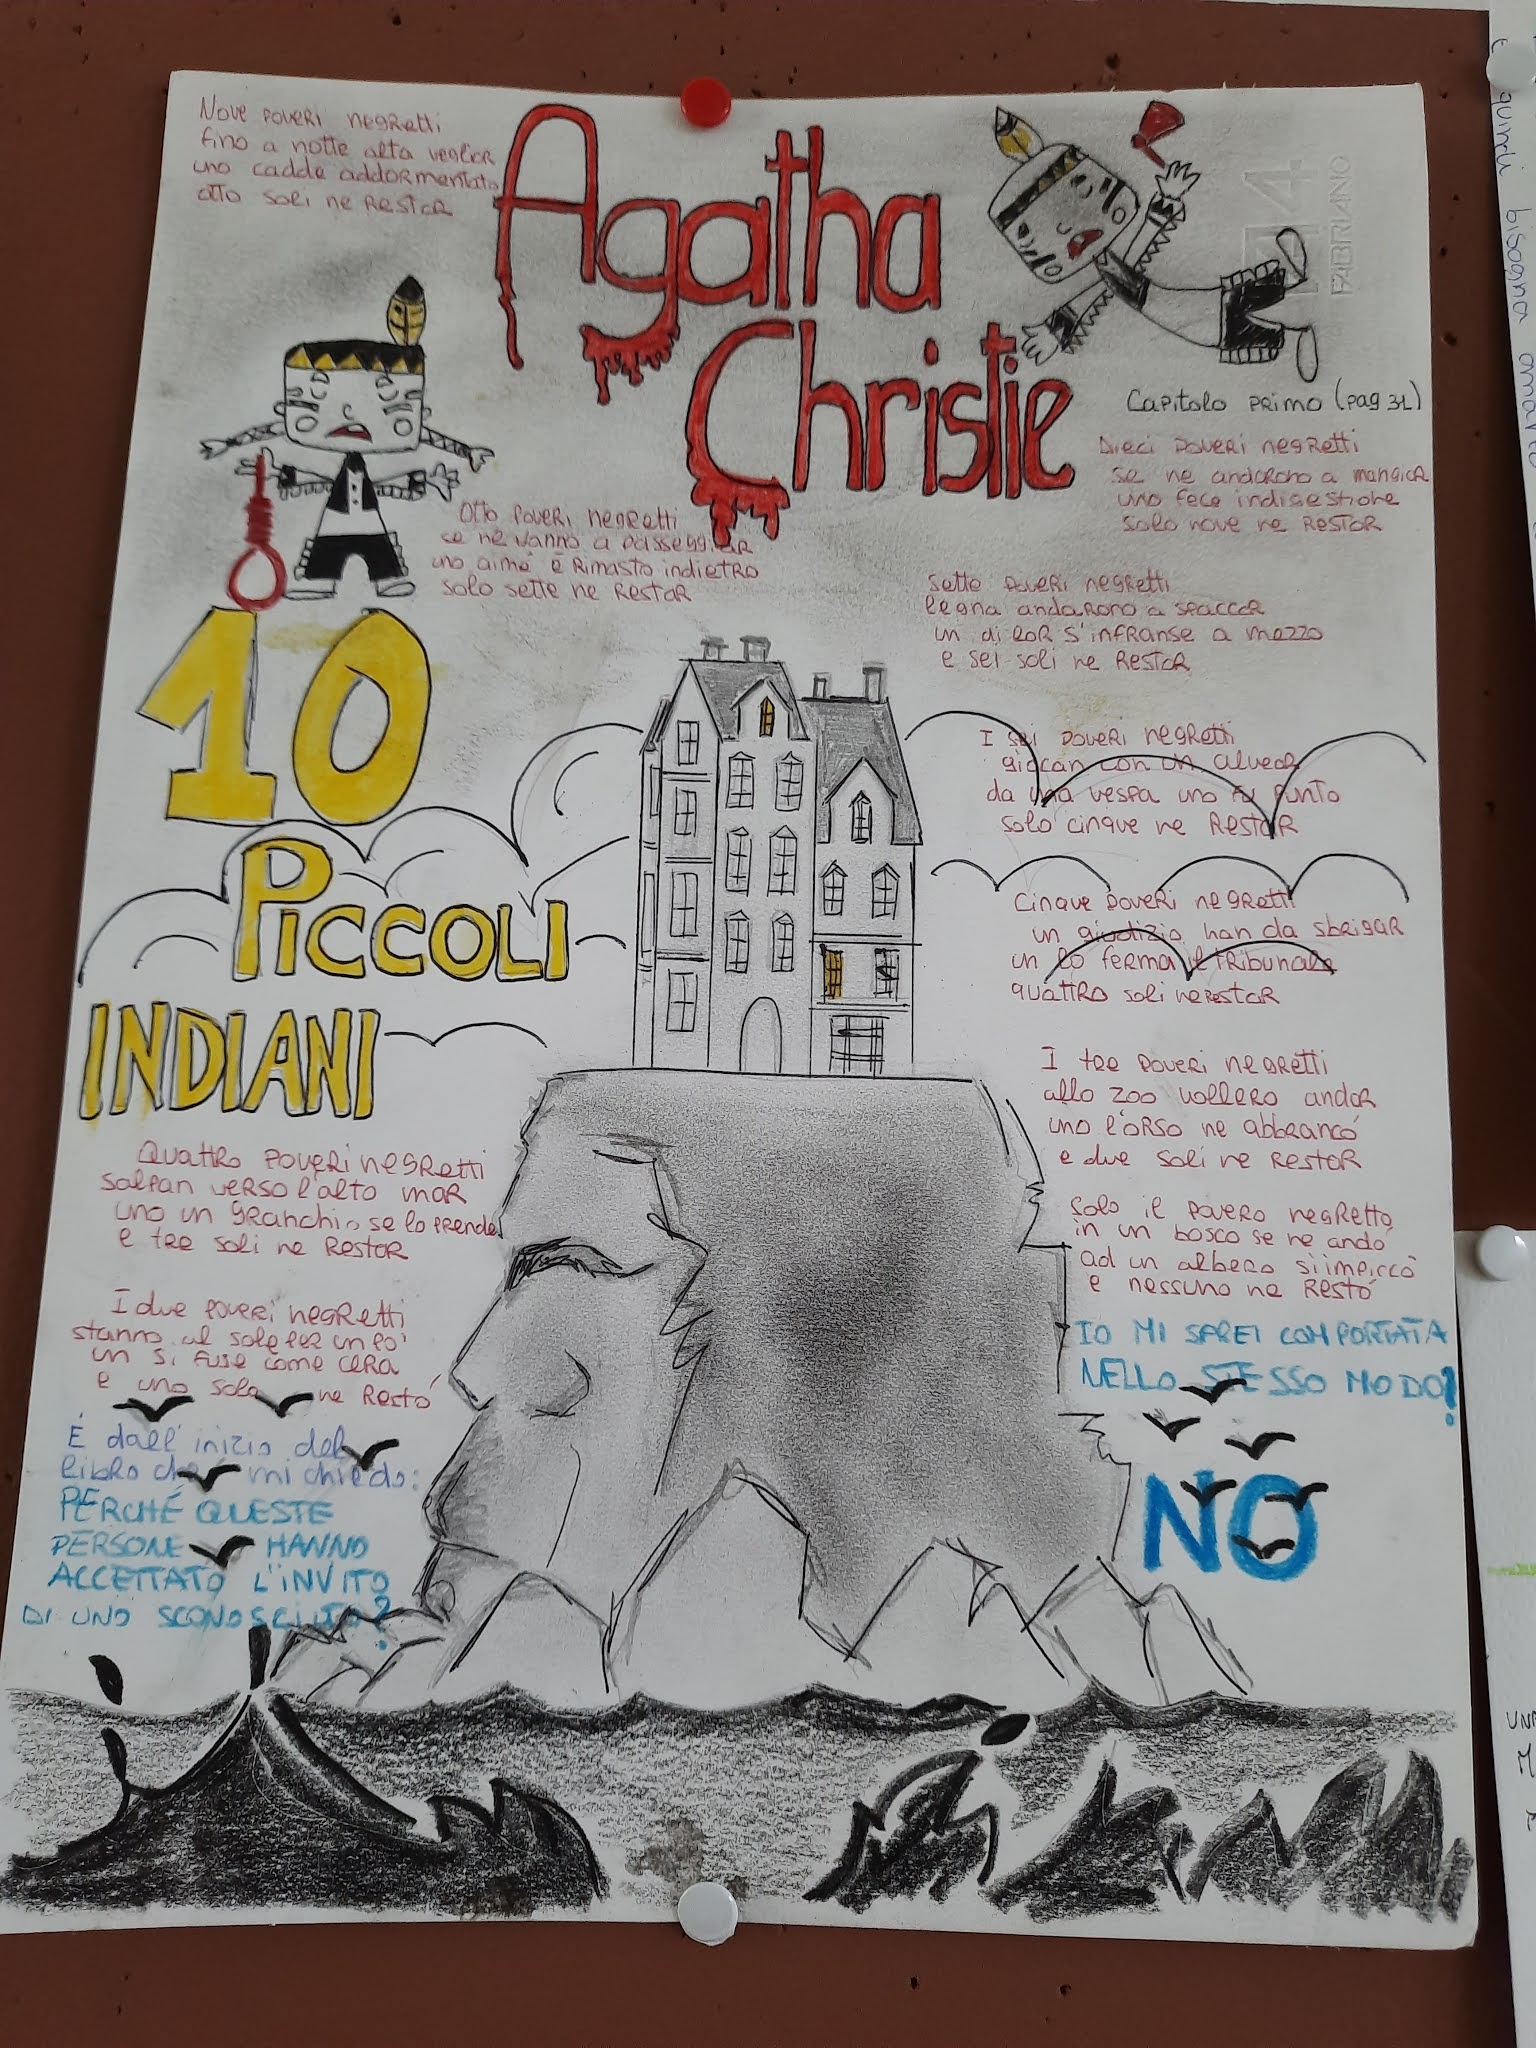 Agatha
Christie
10
Piccoli
INDIANI
Capitolo primo (pag 31)
Dieci poveri negretti
se ne andarono a mangiar
uno fece indigestione
solo nove ne restar
Nove poveri negretti
fino a notte alta vegliar
uno cadde addormentato
otto soli ne restar
Otto poveri negretti
se ne vanno a passeggiar
uno aimè è rimasto indietro
solo sette ne restar
Sette poveri negretti
legna andarono a spaccar
un di lor s'infranse a mezzo
e sei soli ne restar
I sei poveri negretti
giocan con un alvear
da una vespa uno fu punto
solo cinque ne restar
Cinque poveri negretti
un giudizio han da sbrigar
un lo ferma il tribunale
quattro soli ne restar
Quattro poveri negretti
salpan verso l'alto mar
uno un granchio se lo prende
e tre soli ne restar
I tre poveri negretti
allo zoo vollero andar
uno l'orso ne abbrancò
e due soli ne restar
I due poveri negretti
stanno al sole per un po'
un si fuse come cera
e uno solo ne restò
Solo il povero negretto
in un bosco se ne andò
ad un albero s'impiccò
e nessuno ne restò
È dall'inizio del
libro che mi chiedo:
PERCHÉ QUESTE
PERSONE HANNO
ACCETTATO L'INVITO
DI UNO SCONOSCIUTO?
IO MI SAREI COMPORTATA
NELLO STESSO MODO?
NO
FABRIANO
quindi bisogna